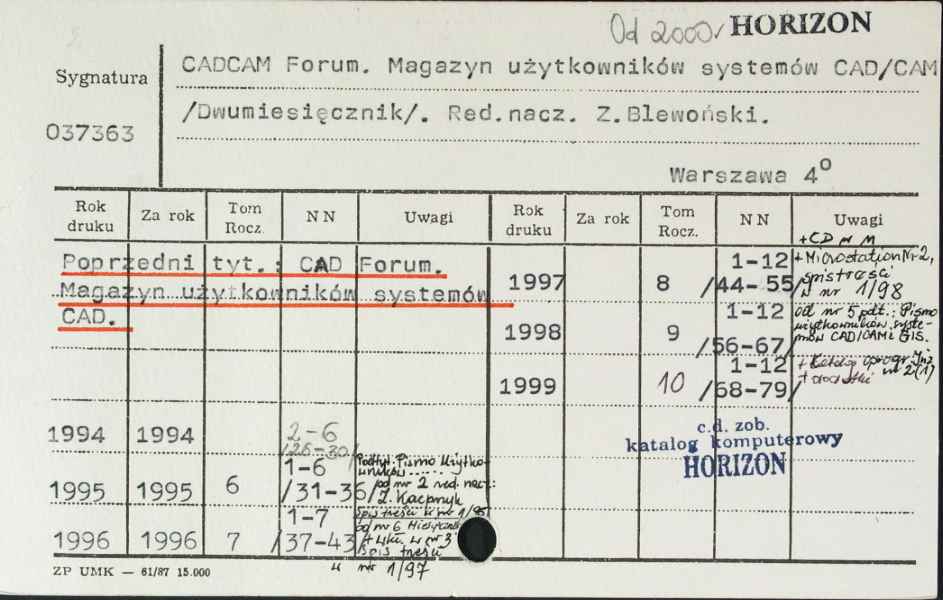 Od 2000r HORIZON
Sygnatura
037363
CADCAM Forum. Magazyn użytkowników systemów CAD/CAM
/Dwumiesięcznik/. Red.nacz. Z.Blewoński.
Warszawa 4°
Rok druku Za rok Tom Rocz. NN Uwagi Rok druku Za rok Tom Rocz. NN Uwagi
Poprzedni tyt.: CAD Forum.
Magazyn użytkowników systemów
CAD.
1994 1994 2-6
/26-30/
1995 1995 6 1-6
/31-36/
Podtyt. Pismo Użytko-
wników.....
od nr 2 red. nacz.:
Spis treści w nr 1/96
1996 1996 7 1-7
/37-43/
od nr 6 Miesięcznik
Spis treści
w nr 1/97
+CD
1997 8 1-12
/44-55/
+Microstation Nr 2,
spis treści
w nr 1/98
1998 9 1-12
/56-67/
od nr 5 podt.: Pismo
użytkowników syste-
mów CAD/CAM i GIS.
1999 10 1-12
/68-79/
+ Katalog oprogr. Inż.
nr 2(1)
c.d. zob.
katalog komputerowy
HORIZON
ZP UMK — 61/87 15.000